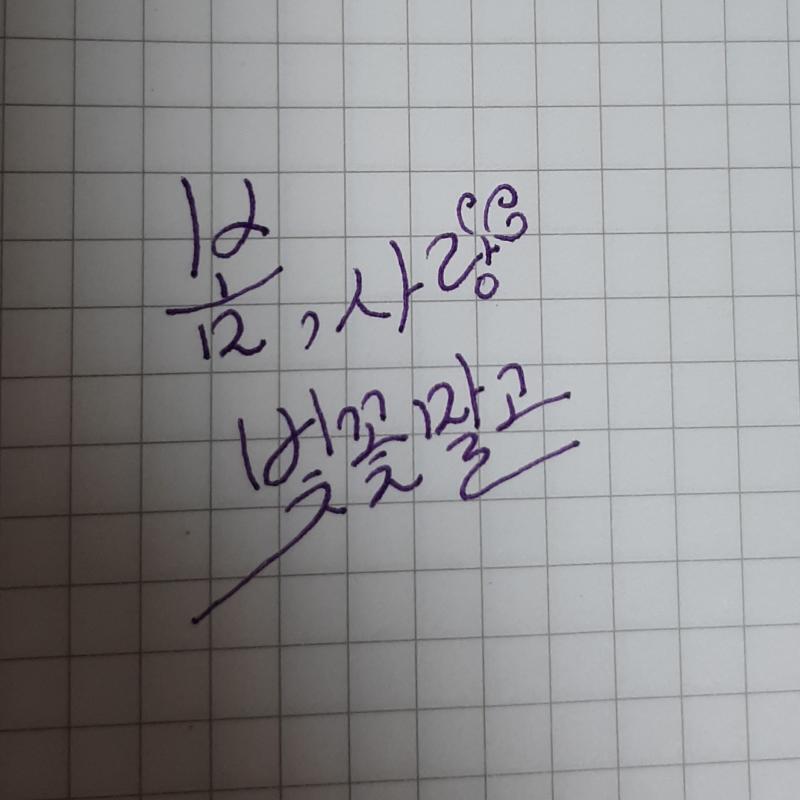 봄, 사랑
벚꽃말고